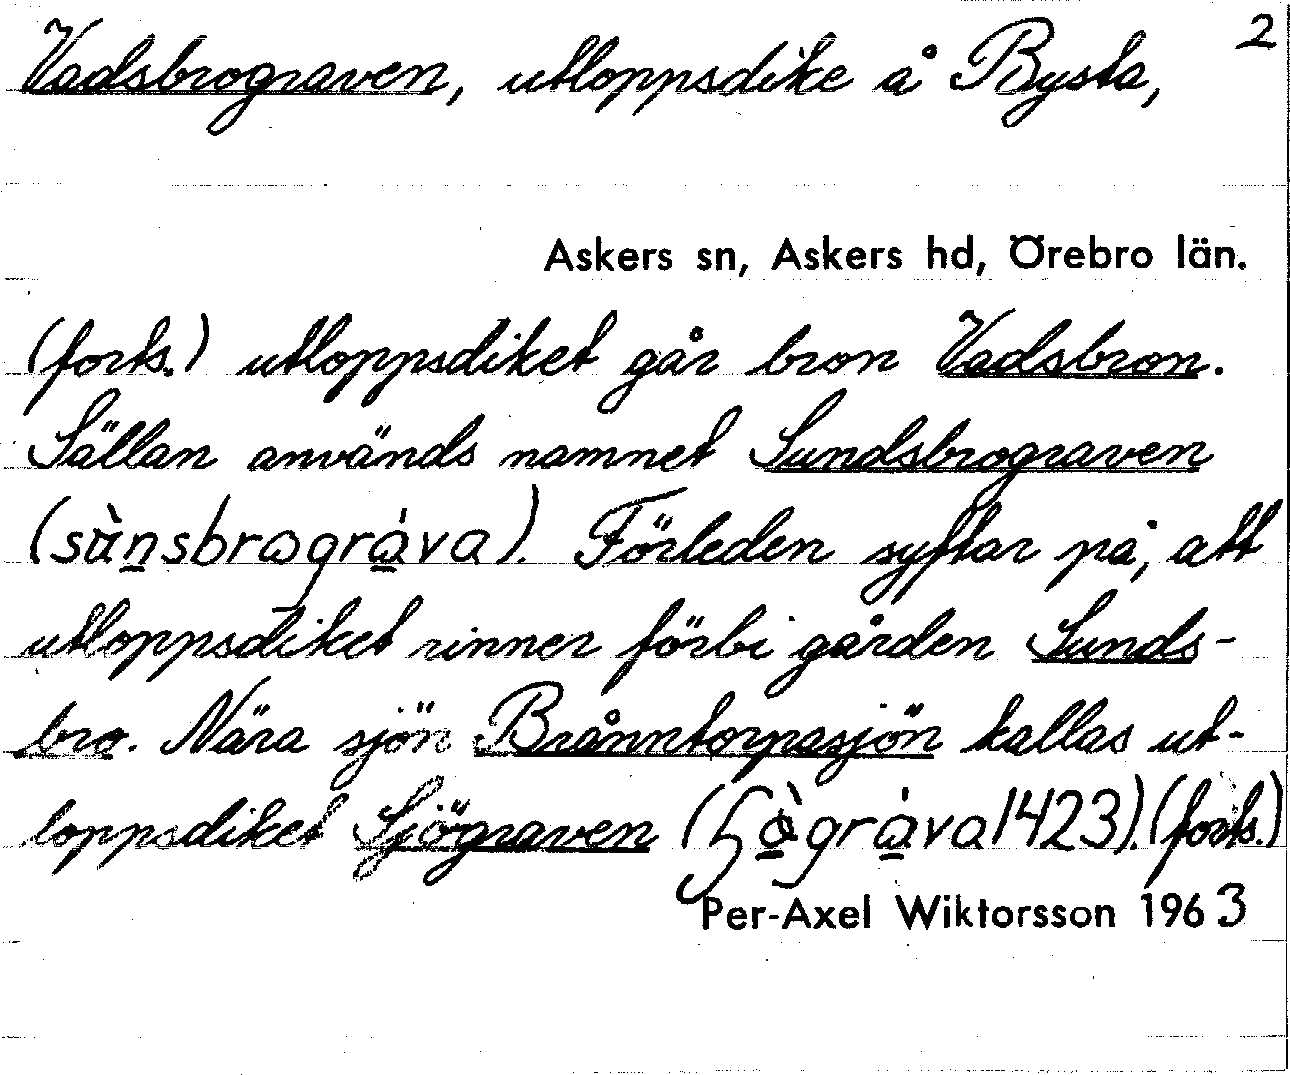 Vadsbrograven, utloppsdike å Bysta, 2
Askers sn, Askers hd, Örebro län.
(forts.) utloppsdiket går bron Vadsbron.
Sällan används namnet Sundsbrograven
(sùnsbrográva). Förleden syftar på, att
utloppsdiket rinner förbi gården Sunds-
bro. Nära sjön Brånntorpasjön kallas ut-
loppsdiket Sjögraven (1423). (forts.)
Per-Axel Wiktorsson 1963